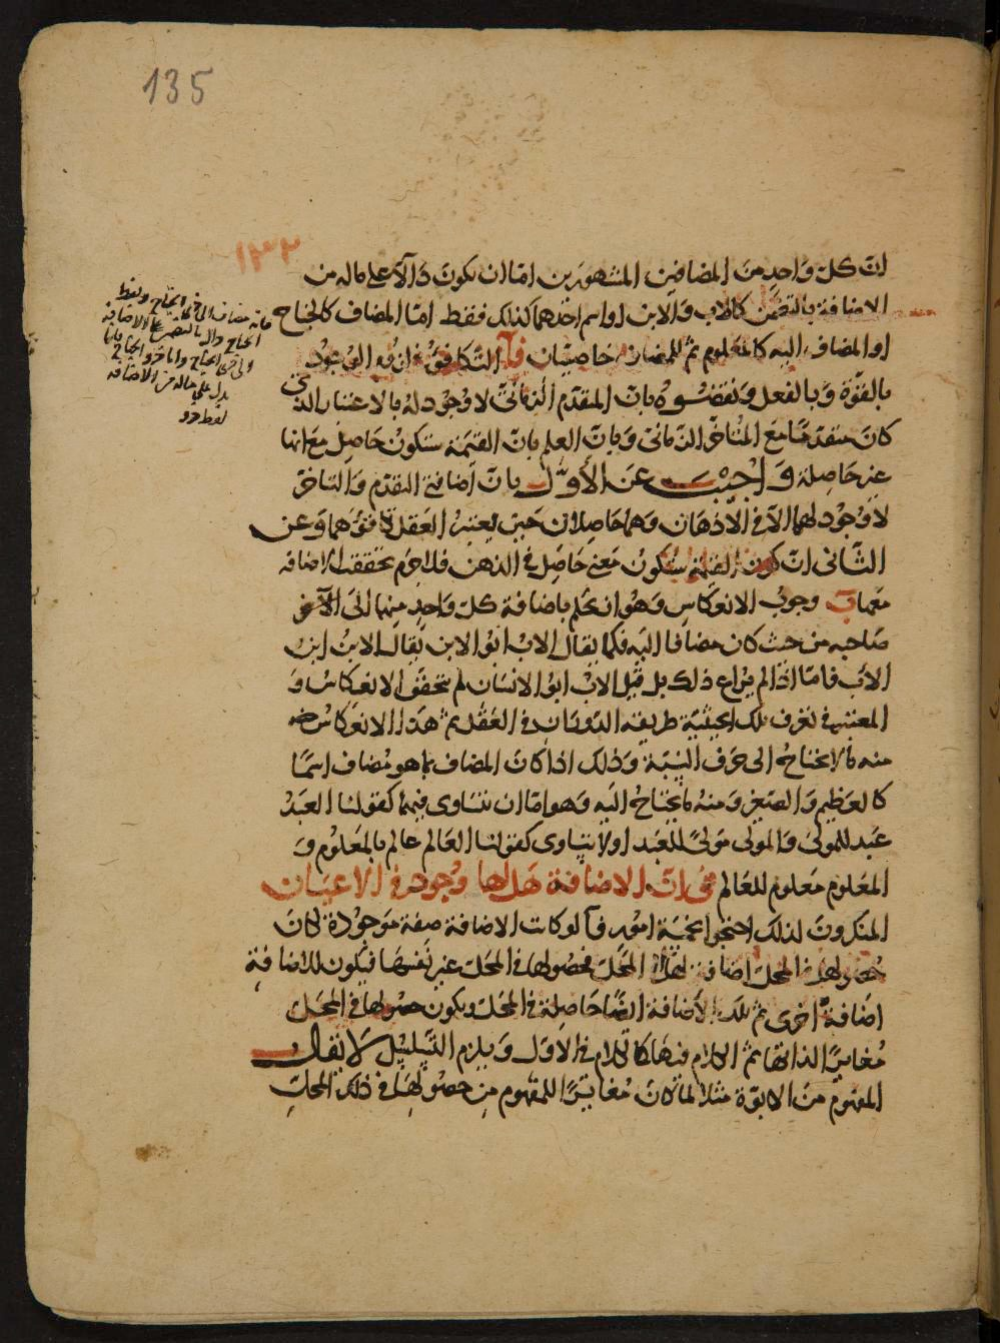 135
١٣٢
ان كل واحد من المضافين المشهورين اما ان يكون دالا على ماله من
الاضافة بالتضمن كالاب والابن او اسم احدهما كذلك فقط اما المضاف كالجناح
او المضاف اليه كالمعلوم ثم للمضاف خاصيتان آ التكافؤ في الوجود
بالقوة وبالفعل ونقضوه بان المتقدم الزماني لا وجود له بالاعتبار الذي
كان متقدما مع المتأخر الزماني وبان العلم بان القيمة ستكون حاصل مع انها
غير حاصلة واجيب عن الأول بان اضافتي التقدم والتأخر
لا وجود لهما الا في الاذهان وهما حاصلان حين يعتبر العقل وعن
الثاني ان كون القيمة ستكون معنى حاصل في الذهن فلا جرم تحققت الاضافة
معها ب وجوب الانعكاس وهو ان يحكم باضافة كل واحد منهما الى الآخر
صاحبه من حيث كان مضافا اليه فكما يقال الاب ابو الابن يقال الابن ابن
الأب فاما اذا لم يراع ذلك بل قيل الاب ابو الانسان لم يتحقق الانعكاس و
المعتبر في تعرف تلك الحيثية طريقه الدوران في العقل ثم هذا الانعكاس
منه ما لا يحتاج الى حرف النسبة وذلك اذا كان المضاف بما هو مضاف اسما
كالعظيم والصغير ومنه ما يحتاج اليه وهو اما ان تتساوى فيهما كقولنا العبد
عبد للمولى والمولى مولى للعبد او لا يتساوى كقولنا العالم عالم بالمعلوم و
المعلوم معلوم للعالم في ان الاضافة هل لها وجود في الاعيان
المنكرون لذلك احتجوا بخمسة امور آ لو كانت الاضافة صفة موجودة لكان
حصولها في المحل اضافة لها الى المحل فحصولها في المحل غير نفسها فيكون للاضافة
اضافة اخرى ثم تلك الاضافة ايضا حاصلة في المحل ويكون حصولها في المحل
مغايرا لذاتها ثم الكلام فيها كالكلام في الاول ويلزم التسلسل لا يقال
المفهوم من الابوة مثلا لما كان مغايرا للمفهوم من حصولها في ذلك المحل
فانه مضاف الى ذي الجناح ولفظ
الجناح دال بالتضمن على الاضافة
الى ذي الجناح واما ذو الجناح فانما
يدل على ماله من الاضافة
لفظ ذو